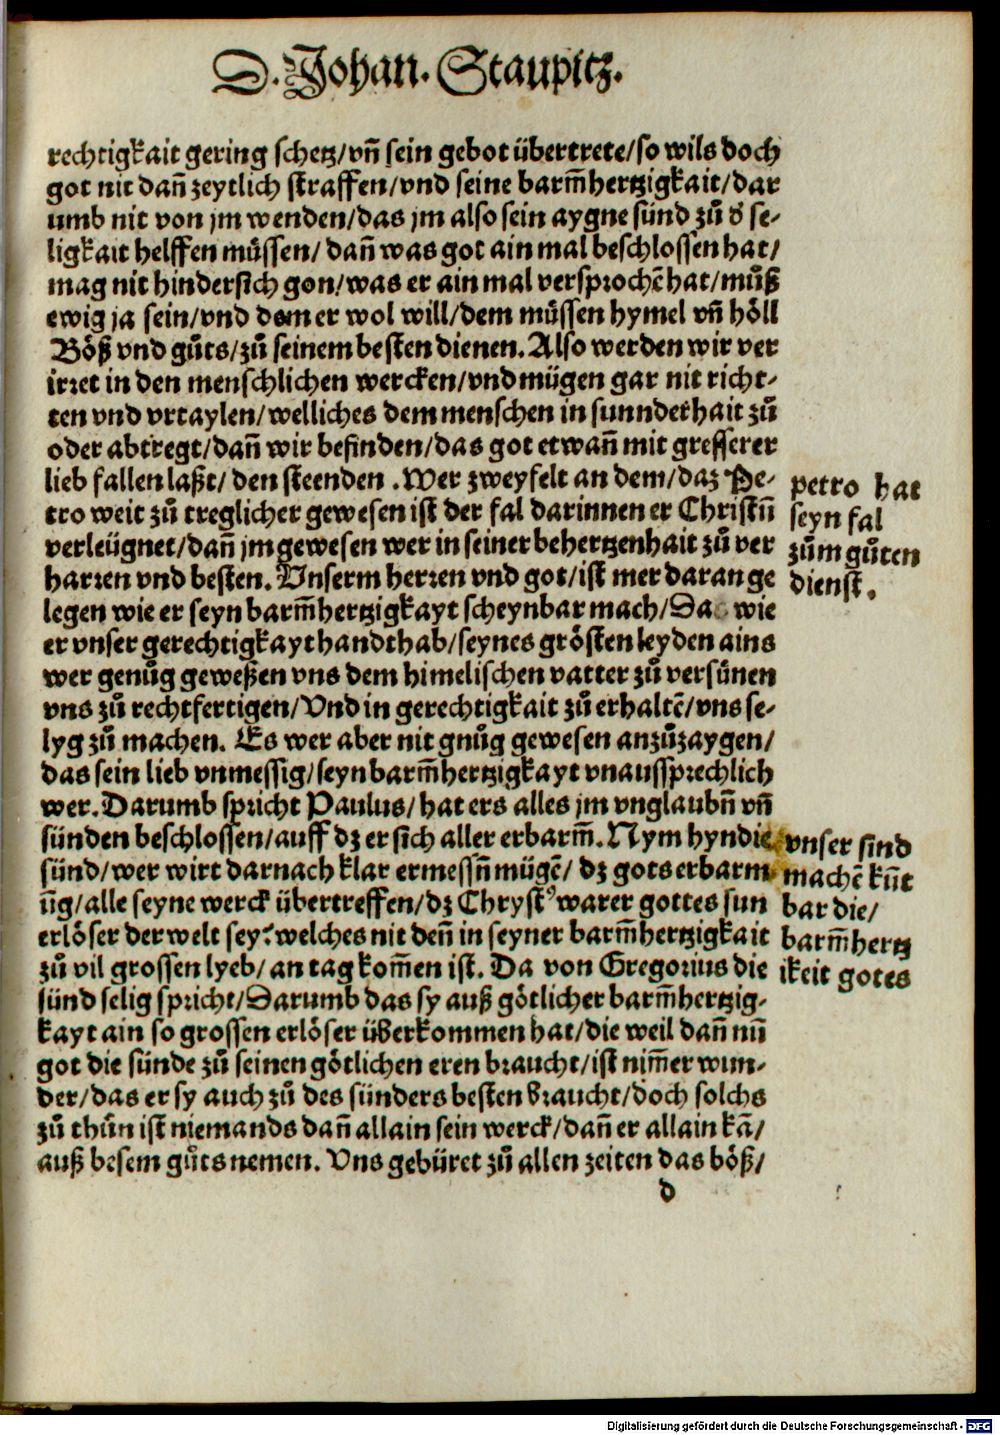 D. Johan. Staupitz.
rechtigkait gering schetz/vñ sein gebot übertrete/so wils doch
got nit dañ zeytlich straffen/vnd seine barm̃hertzigkait/dar
umb nit von jm wenden/das jm also sein aygne sünd zů d' se-
ligkait helffen müssen/ dañ was got ain mal beschlossen hat/
mag nit hindersich gon/was er ain mal versprochẽ hat/můß
ewig ja sein/vnd dem er wol will/dem müssen hymel vñ höll
Böß vnd gůts/zů seinem besten dienen. Also werden wir ver
irret in den menschlichen wercken/vnd mügen gar nit richt-
ten vnd vrtaylen/welliches dem menschen in sunnderhait zů
oder abtregt/dañ wir befinden/das got etwañ mit gresserer
lieb fallen laßt/ den steenden . Wer zweyfelt an dem/daz Pe-
tro weit zů treglicher gewesen ist der fal darinnen er Christũ
verleügnet/dañ jm gewesen wer in seiner behertzenhait zů ver
harren vnd besten. Vnserm herren vnd got/ist mer daran ge
legen wie er seyn barm̃hertzigkayt scheynbar mach/ wie
er vnser gerechtigkayt handthab/seynes grösten leyden ains
wer genůg geweßen vns dem himelischen vatter zů versünen
vns zů rechtfertigen/Vnd in gerechtigkait zů erhaltẽ/vns se-
lyg zů machen. Es wer aber nit gnůg gewesen anzůzaygen/
das sein lieb vnmessig/seyn barm̃hertzigkayt vnaussprechlich
wer. Darumb spricht Paulus/hat ers alles jm vnglaubñ vñ
sünden beschlossen/auff dz er sich aller erbarm̃. Nym hyn die
sünd/wer wirt darnach klar ermessñ mügẽ/ dz gots erbarm
ũg/alle seyne werck übertreffen/dz Chryst⁹ warer gottes sun
erlöser der welt sey? welches nit deñ in seyner barm̃hertzigkait
zů vil grossen lyeb/ an tag kom̃en ist. Da von Gregorius die
sünd selig spricht/Darumb das sy auß götlicher barm̃hertzig-
kayt ain so grossen erlöser überkommen hat/die weil dañ nũ
got die sünde zů seinen götlichen eren braucht/ist nim̃er wun-
der/das er sy auch zů des sünders besten braucht/doch solchs
zů thůn ist niemands dañ allain sein werck/dañ er allain kã/
auß besem gůts nemen. Vns gebüret zů allen zeiten das böß/
d
petro hat
seyn fal
zům gůten
dienst.
vnser sind
machẽ kũt
bar die/
barm̃hertz
ikeit gotes
Digitalisierung gefördert durch die Deutsche Forschungsgemeinschaft - DFG